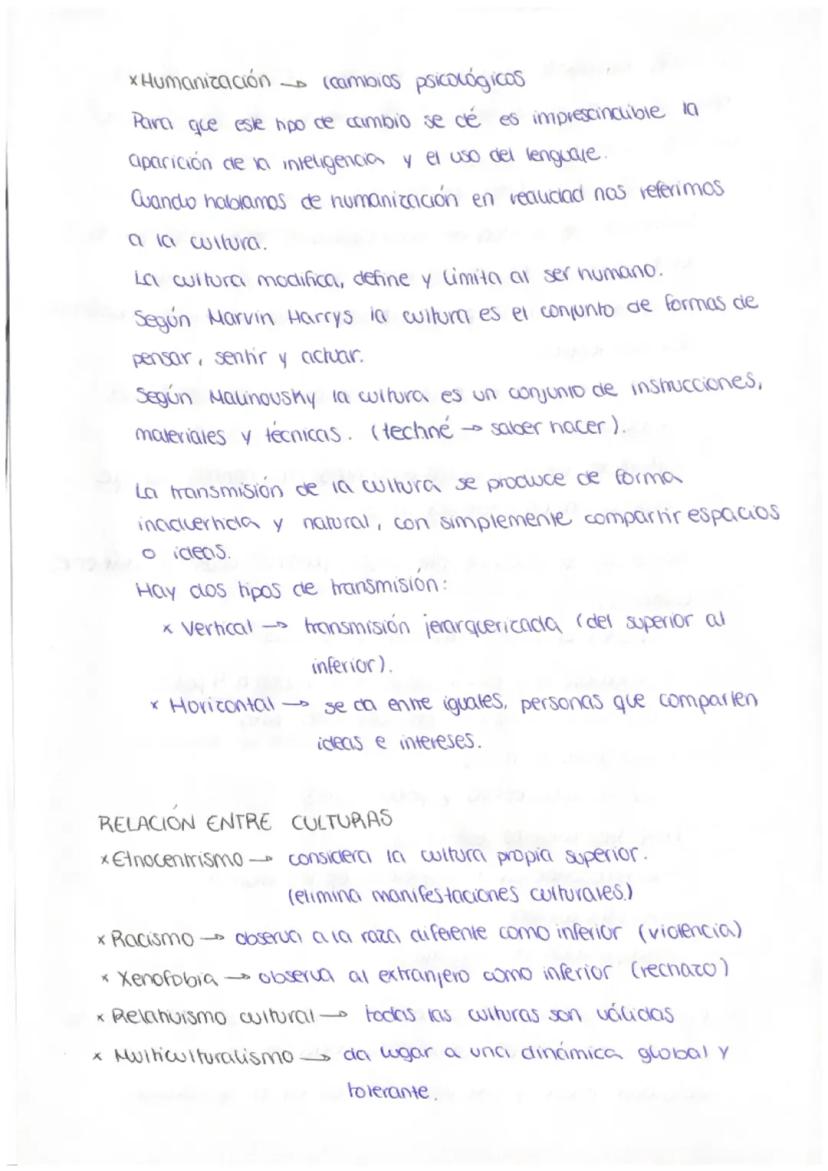 x Humanización → (cambios psicológicos
Para que este tipo de cambio se dé es imprescindible la
aparición de la inteligencia y el uso del lenguaje.
Cuando hablamos de humanización en realidad nos referimos
a la cultura.
La cultura modifica, define y limita al ser humano.
Según Marvin Harrys la cultura es el conjunto de formas de
pensar, sentir y actuar.
Según Malinousky la cultura es un conjunto de instrucciones,
materiales y técnicas. (techné → saber hacer).
La transmisión de la cultura se produce de forma
inadvertida y natural, con simplemente compartir espacios
o ideas.
Hay dos tipos de transmisión:
x Vertical → transmisión jerarquerizada (del superior al
inferior).
x Horizontal → se da entre iguales, personas que comparten
ideas e intereses.
RELACIÓN ENTRE CULTURAS
x Etnocentrismo → considera la cultura propia superior.
(elimina manifestaciones culturales)
x Racismo → observa a la raza diferente como inferior (violencia)
x Xenofobia → observa al extranjero como inferior (rechazo)
x Relativismo cultural → todas las culturas son válidas
x Multiculturalismo → da lugar a una dinámica global y
tolerante.